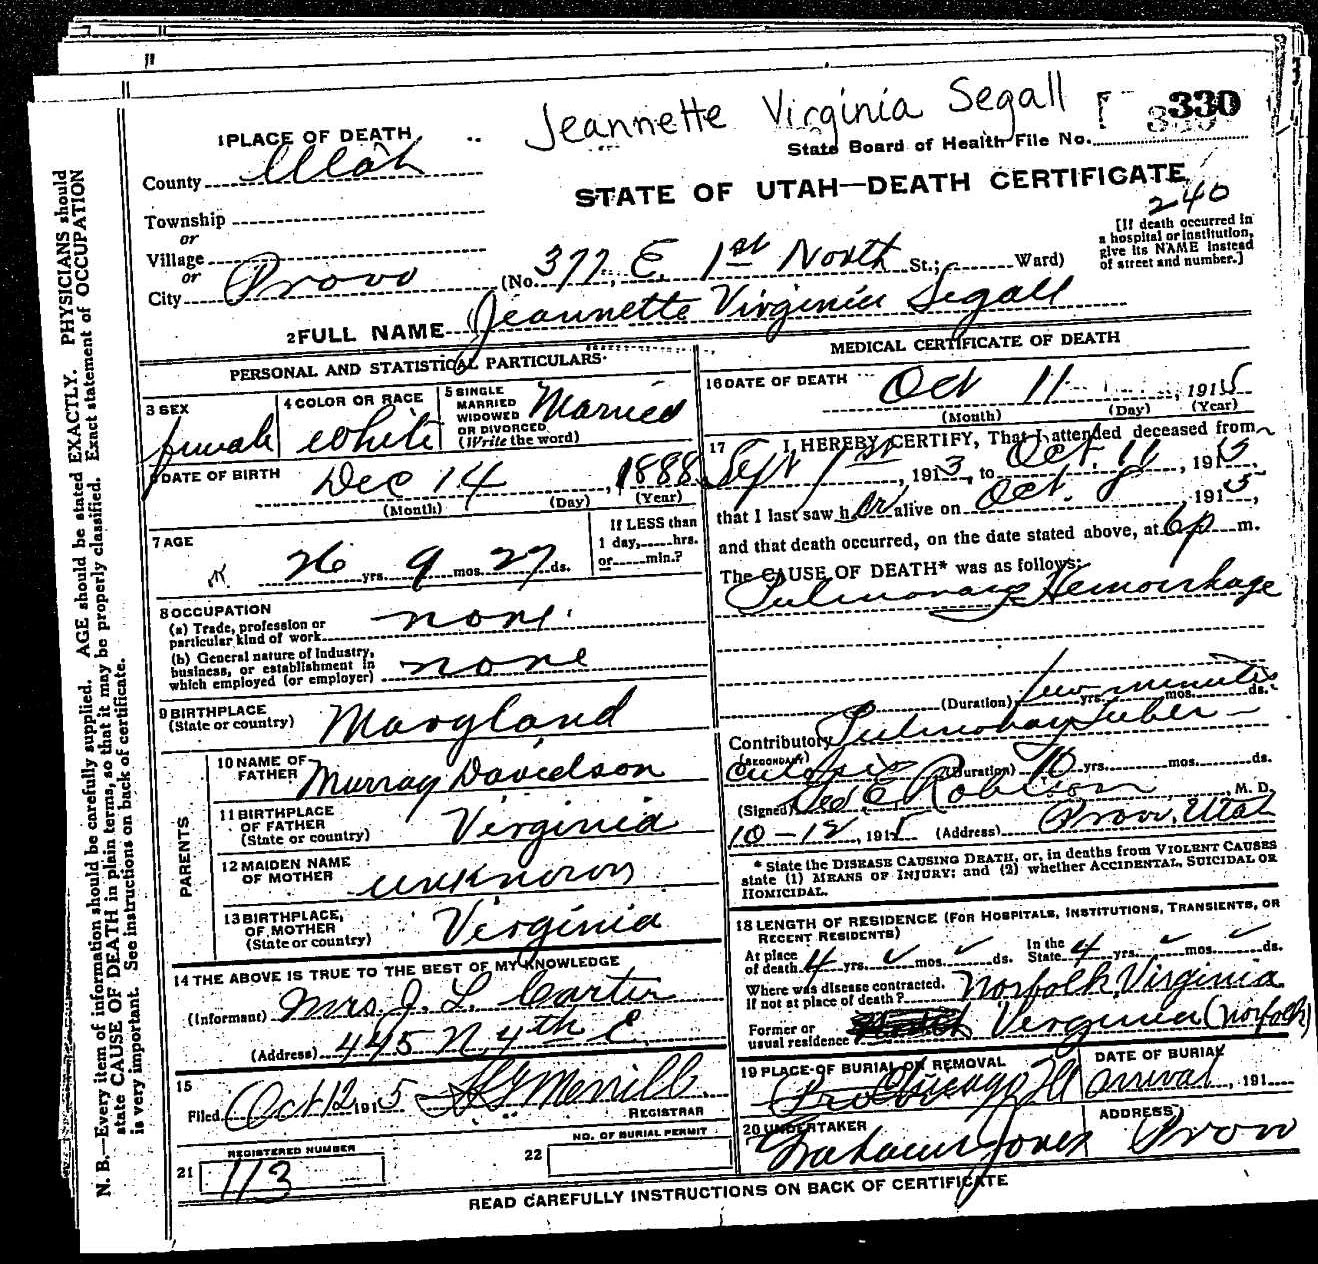 Jeannette Virginia Segall
330
State Board of Health File No.
1 PLACE OF DEATH
County Utah
STATE OF UTAH—DEATH CERTIFICATE
240
Township
or
Village
or
City Provo (No. 377, E. 1st North St.; Ward)
[If death occurred in
a hospital or institution,
give its NAME instead
of street and number.]
2 FULL NAME Jeannette Virginia Segall
PERSONAL AND STATISTICAL PARTICULARS
3 SEX female
4 COLOR OR RACE white
5 SINGLE
MARRIED
WIDOWED
OR DIVORCED
(Write the word) Married
6 DATE OF BIRTH Dec 14, 1888
(Month) (Day) (Year)
7 AGE
26 yrs. 9 mos. 27 ds.
If LESS than
1 day, hrs.
or min.?
8 OCCUPATION
(a) Trade, profession or
particular kind of work none.
(b) General nature of industry,
business, or establishment in
which employed (or employer) none
9 BIRTHPLACE
(State or country) Maryland
PARENTS
10 NAME OF
FATHER Murray Davidson
11 BIRTHPLACE
OF FATHER
(State or country) Virginia
12 MAIDEN NAME
OF MOTHER unknown
13 BIRTHPLACE,
OF MOTHER
(State or country) Virginia
14 THE ABOVE IS TRUE TO THE BEST OF MY KNOWLEDGE
(Informant) Mrs J. L. Carter
(Address) 445 N 4th E
15
Filed Oct 12 1915 Merrill
REGISTRAR
REGISTERED NUMBER
21 113
NO. OF BURIAL PERMIT
22
MEDICAL CERTIFICATE OF DEATH
16 DATE OF DEATH Oct 11, 1915
(Month) (Day) (Year)
17 I HEREBY CERTIFY, That I attended deceased from
Sept 1st, 1913, to Oct. 11, 1915,
that I last saw her alive on Oct. 8, 1915,
and that death occurred, on the date stated above, at 6 p m.
The CAUSE OF DEATH* was as follows:
Pulmonary Hemorrhage
(Duration) few minutes yrs. mos. ds.
Contributory Pulmonary Tuber-
(SECONDARY)
culosis (Duration) 10 yrs. mos. ds.
(Signed) Geo E Robison, M. D.
10-12, 1915 (Address) Provo, Utah
* State the DISEASE CAUSING DEATH, or, in deaths from VIOLENT CAUSES
state (1) MEANS OF INJURY; and (2) whether ACCIDENTAL, SUICIDAL OR
HOMICIDAL.
18 LENGTH OF RESIDENCE (FOR HOSPITALS, INSTITUTIONS, TRANSIENTS, OR
RECENT RESIDENTS)
At place
of death 4 yrs. mos. ds. In the
State 4 yrs. mos. ds.
Where was disease contracted,
if not at place of death? Norfolk, Virginia
Former or
usual residence Virginia (Norfolk)
19 PLACE OF BURIAL OR REMOVAL
Chicago Ill
DATE OF BURIAL
arrival, 191
20 UNDERTAKER
Graham Jones
ADDRESS
Provo
READ CAREFULLY INSTRUCTIONS ON BACK OF CERTIFICATE
N. B.—Every item of information should be carefully supplied. AGE should be stated EXACTLY. PHYSICIANS should
state CAUSE OF DEATH in plain terms, so that it may be properly classified. Exact statement of OCCUPATION
is very important. See instructions on back of certificate.